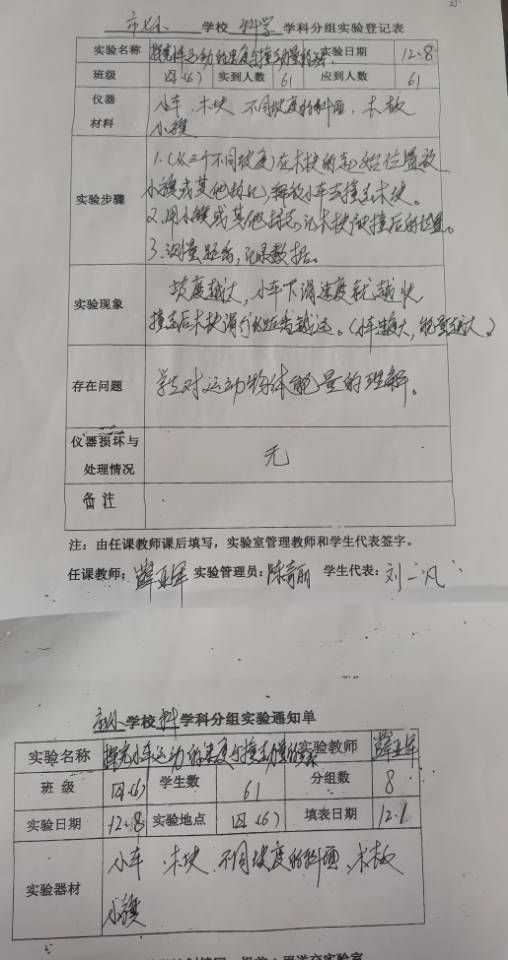 学校 科学 学科分组实验登记表
实验名称 探究小车运动的速度与撞击 实验日期 12.8
班级 四(6) 实到人数 61 应到人数 61
仪器材料 小车、木块、不同坡度的斜面、木板
小旗
实验步骤
1.(从三个不同坡度)在木块的起始位置放
小旗或其他标记,释放小车去撞击木块。
2.用小旗或其他标志,记木块被撞后的位置。
3.测量距离,记录数据。
实验现象
坡度越大,小车下滑速度就越快,
撞击后木块滑行的距离越远。(小车速度大,能量越大)
存在问题 学生对运动物体能量的理解。
仪器损坏与处理情况 无
备注
注:由任课教师课后填写,实验室管理教师和学生代表签字。
任课教师: 实验管理员:陈奇丽 学生代表:刘一凡
学校 科 学科分组实验通知单
实验名称 探究小车运动的速度与撞击 实验教师
班级 四(6) 学生数 61 分组数 8
实验日期 12.8 实验地点 四(6) 填表日期 12.1
实验器材 小车、木块、不同坡度的斜面、木板
小旗